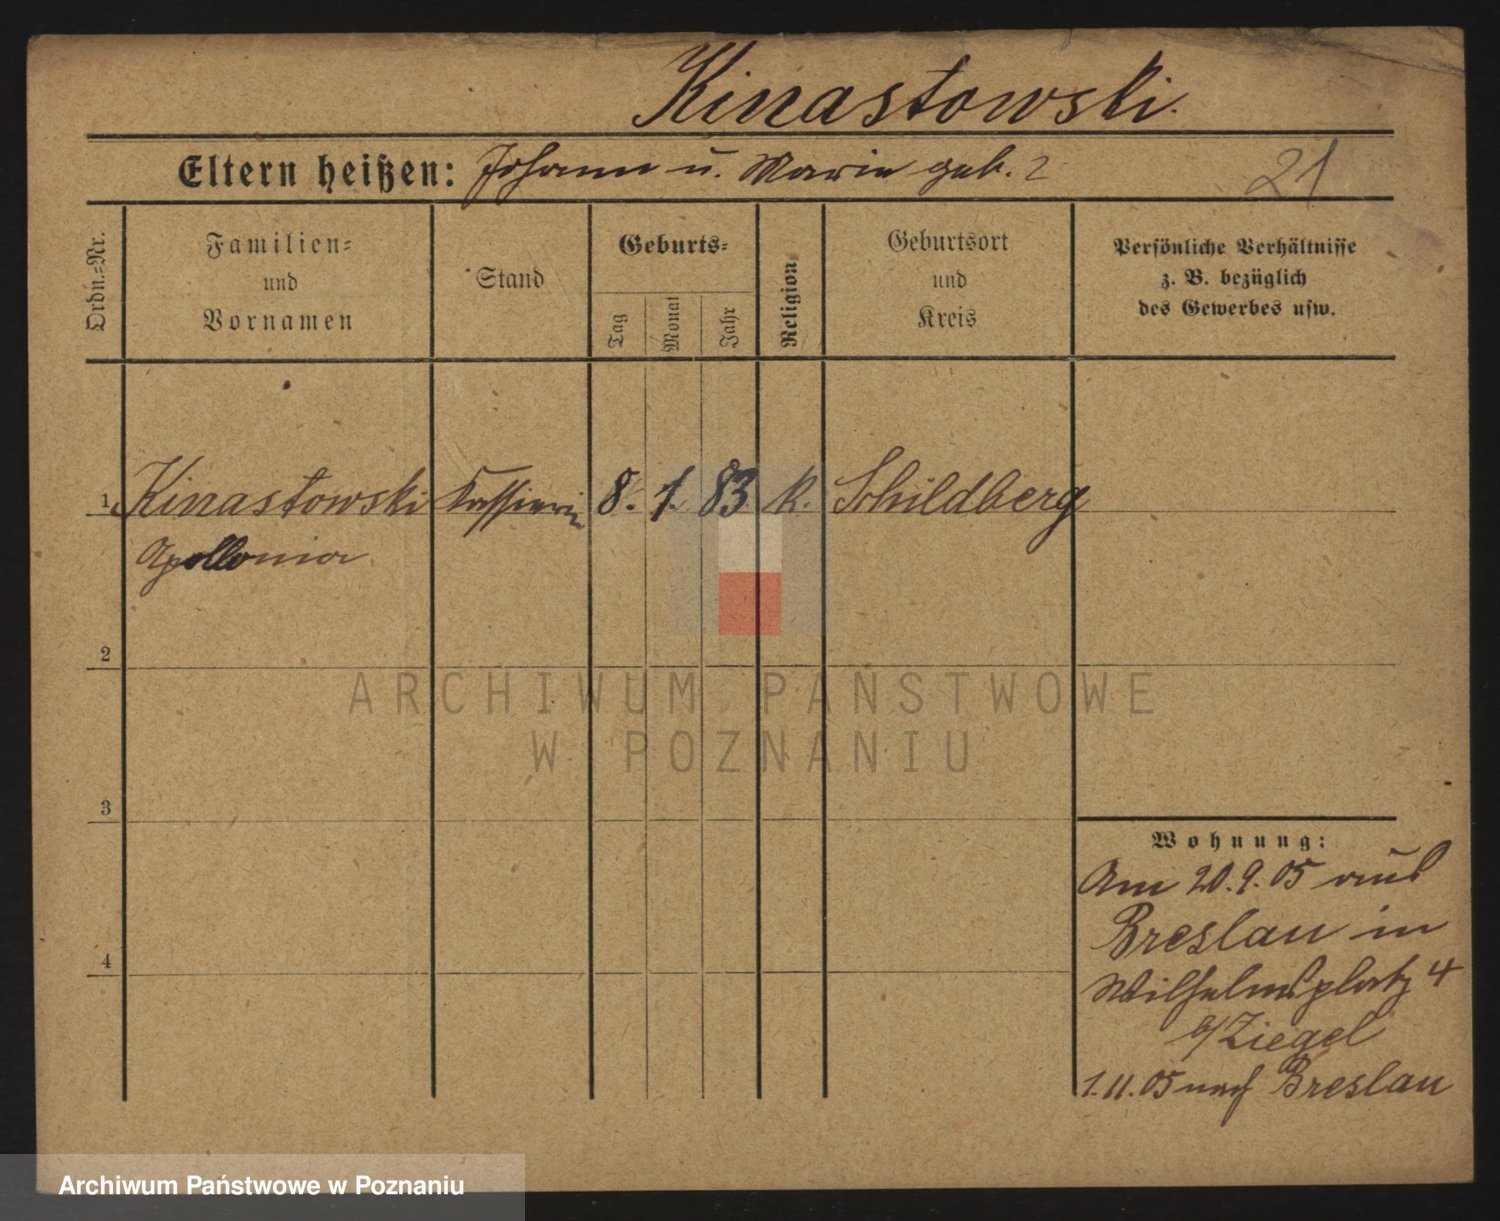 Kinastowski.
Eltern heißen: Johann u. Marie geb. ?
21
Ordn.=Nr.
Familien=
und
Vornamen
Stand
Geburts=
Tag
Monat
Jahr
Religion
Geburtsort
und
Kreis
Persönliche Verhältnisse
z. B. bezüglich
des Gewerbes usw.
1 Kinastowski Kassierin 8. 1. 83. k. Schildberg
Apollonia
2
ARCHIWUM PAŃSTWOWE
W POZNANIU
3
Wohnung:
Am 20.9.05 aus
Breslau in
4
Wilhelmsplatz 4
b/Ziegel
1.11.05 nach Breslau
Archiwum Państwowe w Poznaniu